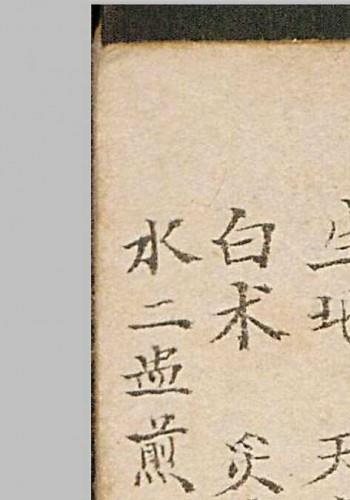 生地 天
白术 炙
水二盞煎